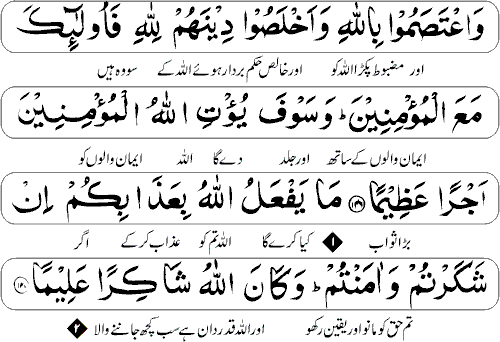 وَاعْتَصَمُوْا بِاللّٰهِ وَاَخْلَصُوْا دِيْنَهُمْ لِلّٰهِ فَاُولٰٓئِكَ
اور مضبوط پکڑا اللہ کو اور خالص حکم بردار ہوئے اللہ کے سو وہ ہیں
مَعَ الْمُؤْمِنِيْنَ ؕ وَسَوْفَ يُؤْتِ اللّٰهُ الْمُؤْمِنِيْنَ
ایمان والوں کے ساتھ اور جلد دے گا اللہ ایمان والوں کو
اَجْرًا عَظِيْمًا ﴿۱۴۶﴾ مَا يَفْعَلُ اللّٰهُ بِعَذَابِكُمْ اِنْ
بڑا ثواب ۱ کیا کرے گا اللہ تم کو عذاب کر کے اگر
شَكَرْتُمْ وَاٰمَنْتُمْ ؕ وَكَانَ اللّٰهُ شَاكِرًا عَلِيْمًا ﴿۱۴۷﴾
تم حق کو مانو اور یقین رکھو اور اللہ قدردان ہے سب کچھ جاننے والا ۲